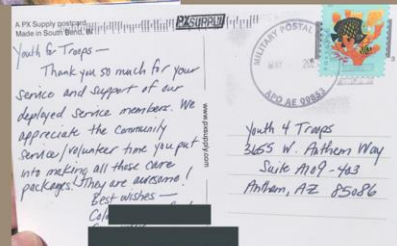 A PX Supply postcard
Made in South Bend, IN
PX SUPPLY
Youth for Troops —
Thank you so much for your
service and support of our
deployed service members. We
appreciate the community
service/volunteer time you put
into making all those care
packages! They are awesome!
Best wishes —
www.pxsupply.com
MILITARY POSTAL
MAY
APO AE
Youth 4 Troops
3655 W. Anthem Way
Suite A109-403
Anthem, AZ 85086